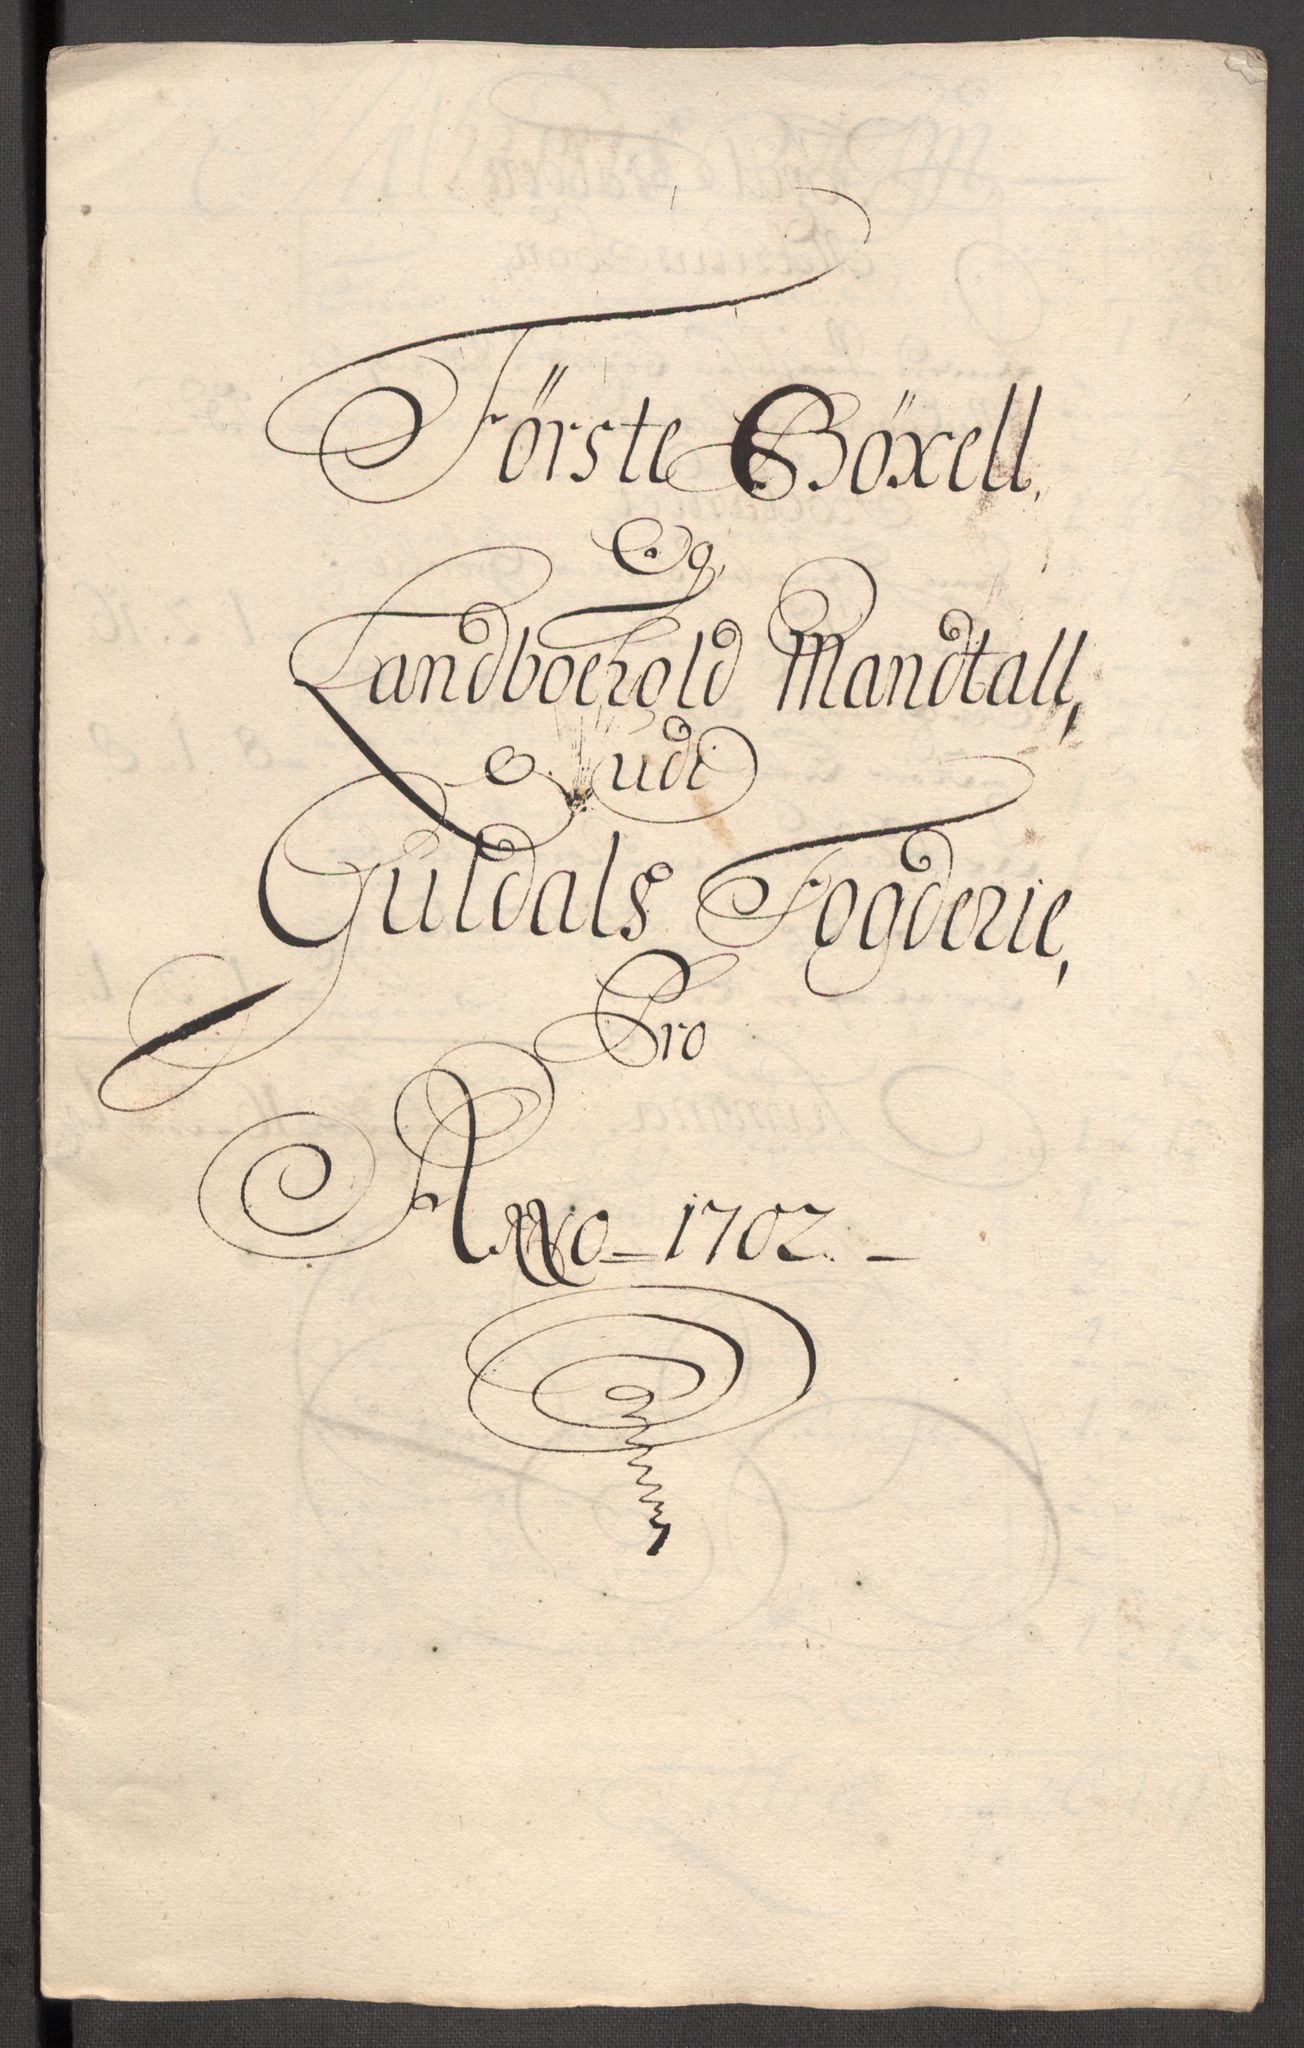 Förste Böxell,
Og,
Landboehold Mandtall,
udi
Guldals Fogderie,
Pro
ANNO 1702.